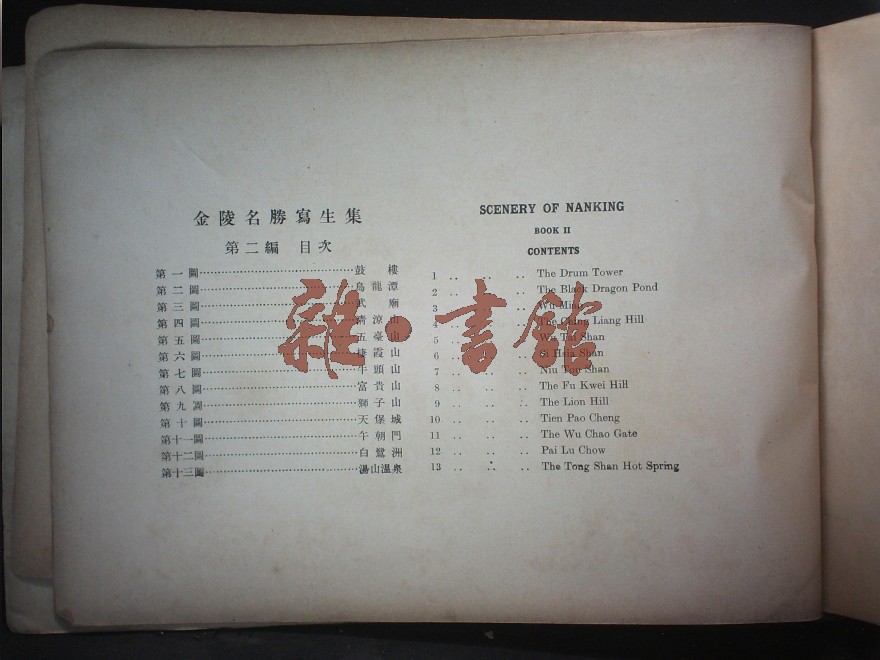 金陵名勝寫生集
第二編 目次
第一圖……鼓樓
第二圖……烏龍潭
第三圖……武廟
第四圖……清涼山
第五圖……五臺山
第六圖……棲霞山
第七圖……牛頭山
第八圖……富貴山
第九圖……獅子山
第十圖……天堡城
第十一圖……午朝門
第十二圖……白鷺洲
第十三圖……湯山溫泉
SCENERY OF NANKING
BOOK II
CONTENTS
1 .. .. .. The Drum Tower
2 .. .. .. The Black Dragon Pond
3 .. .. .. Wu Miao
4 .. .. .. The Ching Liang Hill
5 .. .. .. Wu Tai Shan
6 .. .. .. Si Hsia Shan
7 .. .. .. Niu Tou Shan
8 .. .. .. The Fu Kwei Hill
9 .. .. .. The Lion Hill
10 .. .. .. Tien Pao Cheng
11 .. .. .. The Wu Chao Gate
12 .. .. .. Pai Lu Chow
13 .. .. .. The Tong Shan Hot Spring
雜·書館